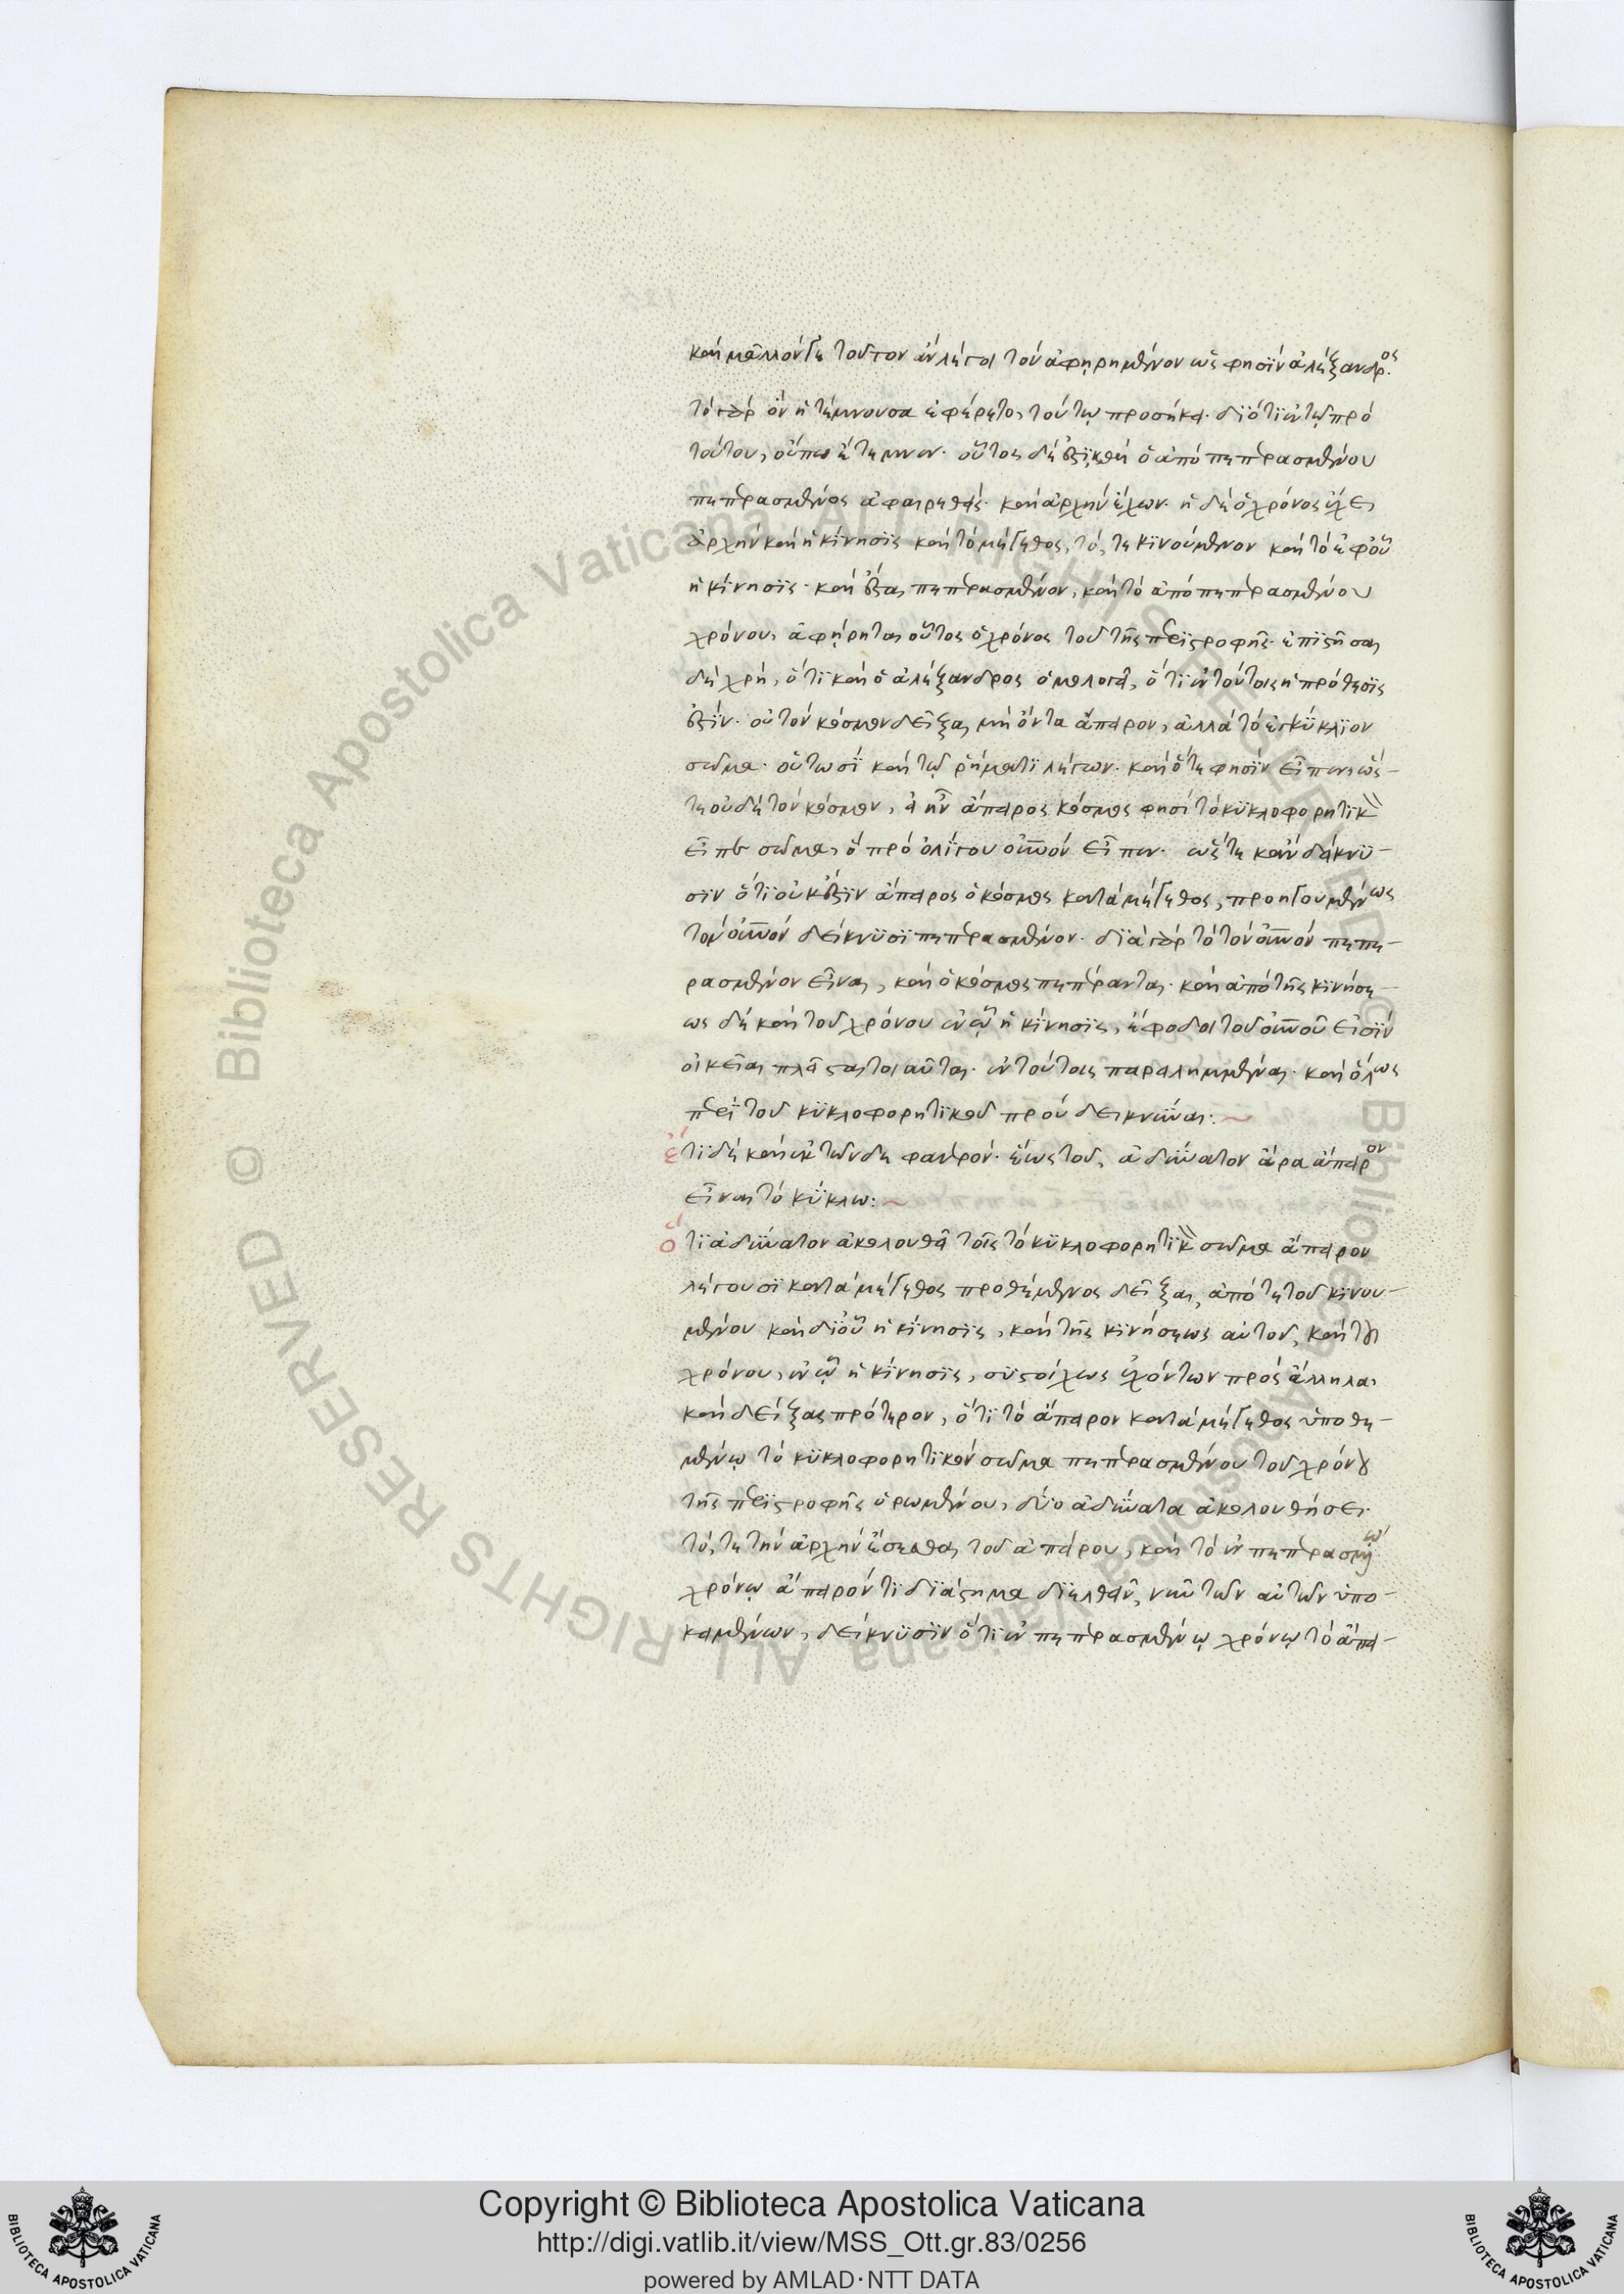 καὶ μᾶλλόν γε τοῦτον ἂν λέγοι τὸν ἀφῃρημένον ὥς φησϊν ἀλέξανδρος.
τὸ γὰρ ὃν ἡ τέμνουσα ἐφέρετο, τούτῳ προσήκει. διότι ἐν τῷ πρὸ
τούτου, οὔπω ἔτεμνεν. οὗτος δέ ἐστιν καὶ ὁ ἀπὸ πεπερασμένου
πεπερασμένος ἀφαιρεθείς. καὶ ἀρχὴν ἔχων. εἰ δὲ ὁ χρόνος ἔχει
ἀρχὴν καὶ ἡ κίνησϊς καὶ τὸ μέγεθος, τό, τε κϊνούμενον καὶ τὸ ἐφ οὗ
ἡ κίνησϊς. καὶ ἔσται πεπερασμένον, καὶ τὸ ἀπὸ πεπερασμένου
χρόνου, ἀφῄρηται οὗτος ὁ χρόνος τοῦ τῆς περϊστροφῆς. ἐπιστῆσαι
δὲ χρή, ὅτϊ καὶ ὁ ἀλέξανδρος ὁμολογεῖ, ὅτϊ ἐν τούτοις ἡ πρόθεσϊς
ἐστίν. οὐ τὸν κόσμον δεῖξαι μὴ ὄντα ἄπειρον, ἀλλὰ τὸ ἐγκύκλϊον
σῶμα. οὕτωσϊ καὶ τῷ ῥήματϊ λέγων. καὶ ὅτε φησϊν εἶπεν, ὥς-
τε οὐδὲ τὸν κόσμον, εἰ ἦν ἄπειρος κόσμος φησὶ τὸ κϋκλοφορητϊκὸν
εἶπε σῶμα, ὃ πρὸ ὀλίγου οὐνον εἶπεν. ὥςτε κἂν δείκνϋ-
σϊν ὅτϊ οὐκ ἔστϊν ἄπειρος ὁ κόσμος κατὰ μέγεθος, προηγουμένως
τὸν οὐνον δείκνϋσϊ πεπερασμένον. διὰ γὰρ τὸ τὸν οὐνον πεπε-
ρασμένον εἶναι, καὶ ὁ κόσμος πεπέρανται. καὶ ἀπὸ τῆς κϊνήσε-
ως δὲ καὶ τοῦ χρόνου ἐν ᾧ ἡ κίνησϊς, ἔφοδοι τοῦ οὐνοῦ εἰσϊν
οἰκεῖαι πλεῖσται τοιαῦται. ἐν τούτοις παραλημμέναι. καὶ ὅλως
περὶ τοῦ κϋκλοφορητϊκοῦ πρόκειται δεικνύναι:
ἔτϊ δὲ καὶ ἐκ τῶνδε φανερόν. ἕως τοῦ, ἀδύνατον ἄρα ἄπειρον
εἶναι τὸ κύκλω:
ὅτϊ ἀδύνατον ἀκολουθεῖ τοῖς τὸ κϋκλοφορητϊκὸν σῶμα ἄπειρον
λέγουσϊ κατὰ μέγεθος προθέμενος δεῖξαι, ἀπό τε τοῦ κϊνου-
μένου καὶ δϊ οὗ ἡ κίνησϊς, καὶ τῆς κϊνήσεως αὐτοῦ, καὶ τοῦ
χρόνου, ἐν ᾧ ἡ κίνησϊς, συστοίχως ἐχόντων πρὸς ἄλληλα,
καὶ δείξας πρότερον, ὅτϊ τὸ ἄπειρον κατὰ μέγεθος ὑποθε-
μένῳ τὸ κϋκλοφορητϊκὸν σῶμα πεπερασμένου τοῦ χρόνου
τῆς περϊστροφῆς ὁρωμένου, δύο ἀδύνατα ἀκολουθήσει.
τό, τε τὴν ἀρχὴν ἔσεσθαι τοῦ ἀπείρου, καὶ τὸ ἐν πεπερασμένω
χρόνῳ ἄπειρόν τϊ διάστημα δϊελθεῖν, νῦν τῶν αὐτῶν ὑπο-
κειμένων, δείκνϋσϊν ὅτϊ ἐν πεπερασμένῳ χρόνῳ τὸ ἄπει-
Copyright © Biblioteca Apostolica Vaticana
http://digi.vatlib.it/view/MSS_Ott.gr.83/0256
powered by AMLAD·NTT DATA